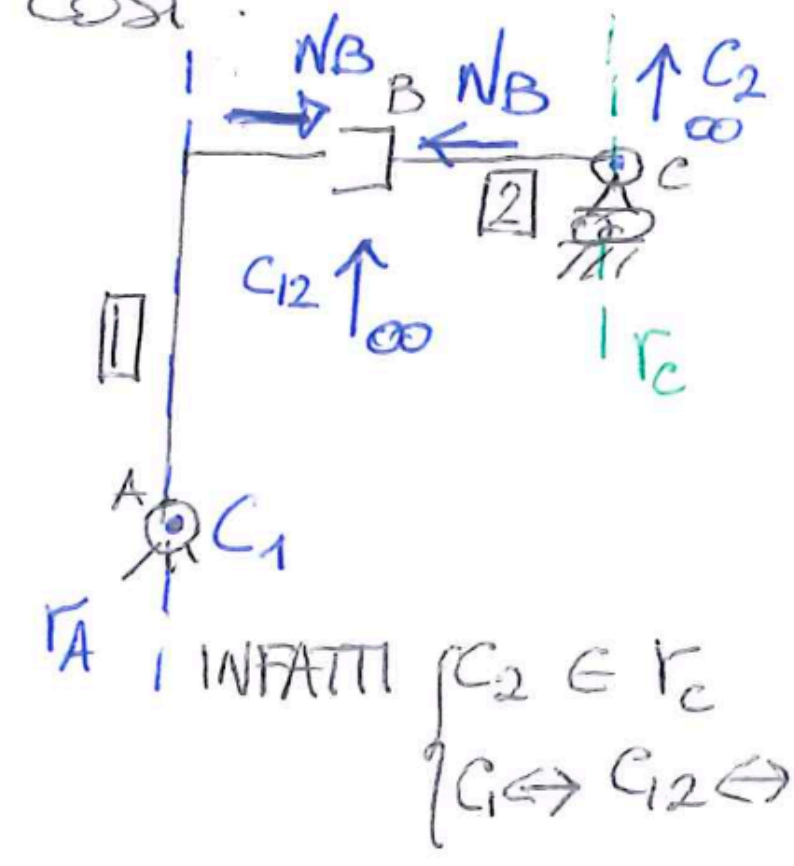 COSÌ :
NB
B
NB
C2
∞
C
2
C12
∞
1
rC
A
C1
rA
INFATTI { C2 ∈ rC
C1 ⇔ C12 ⇔